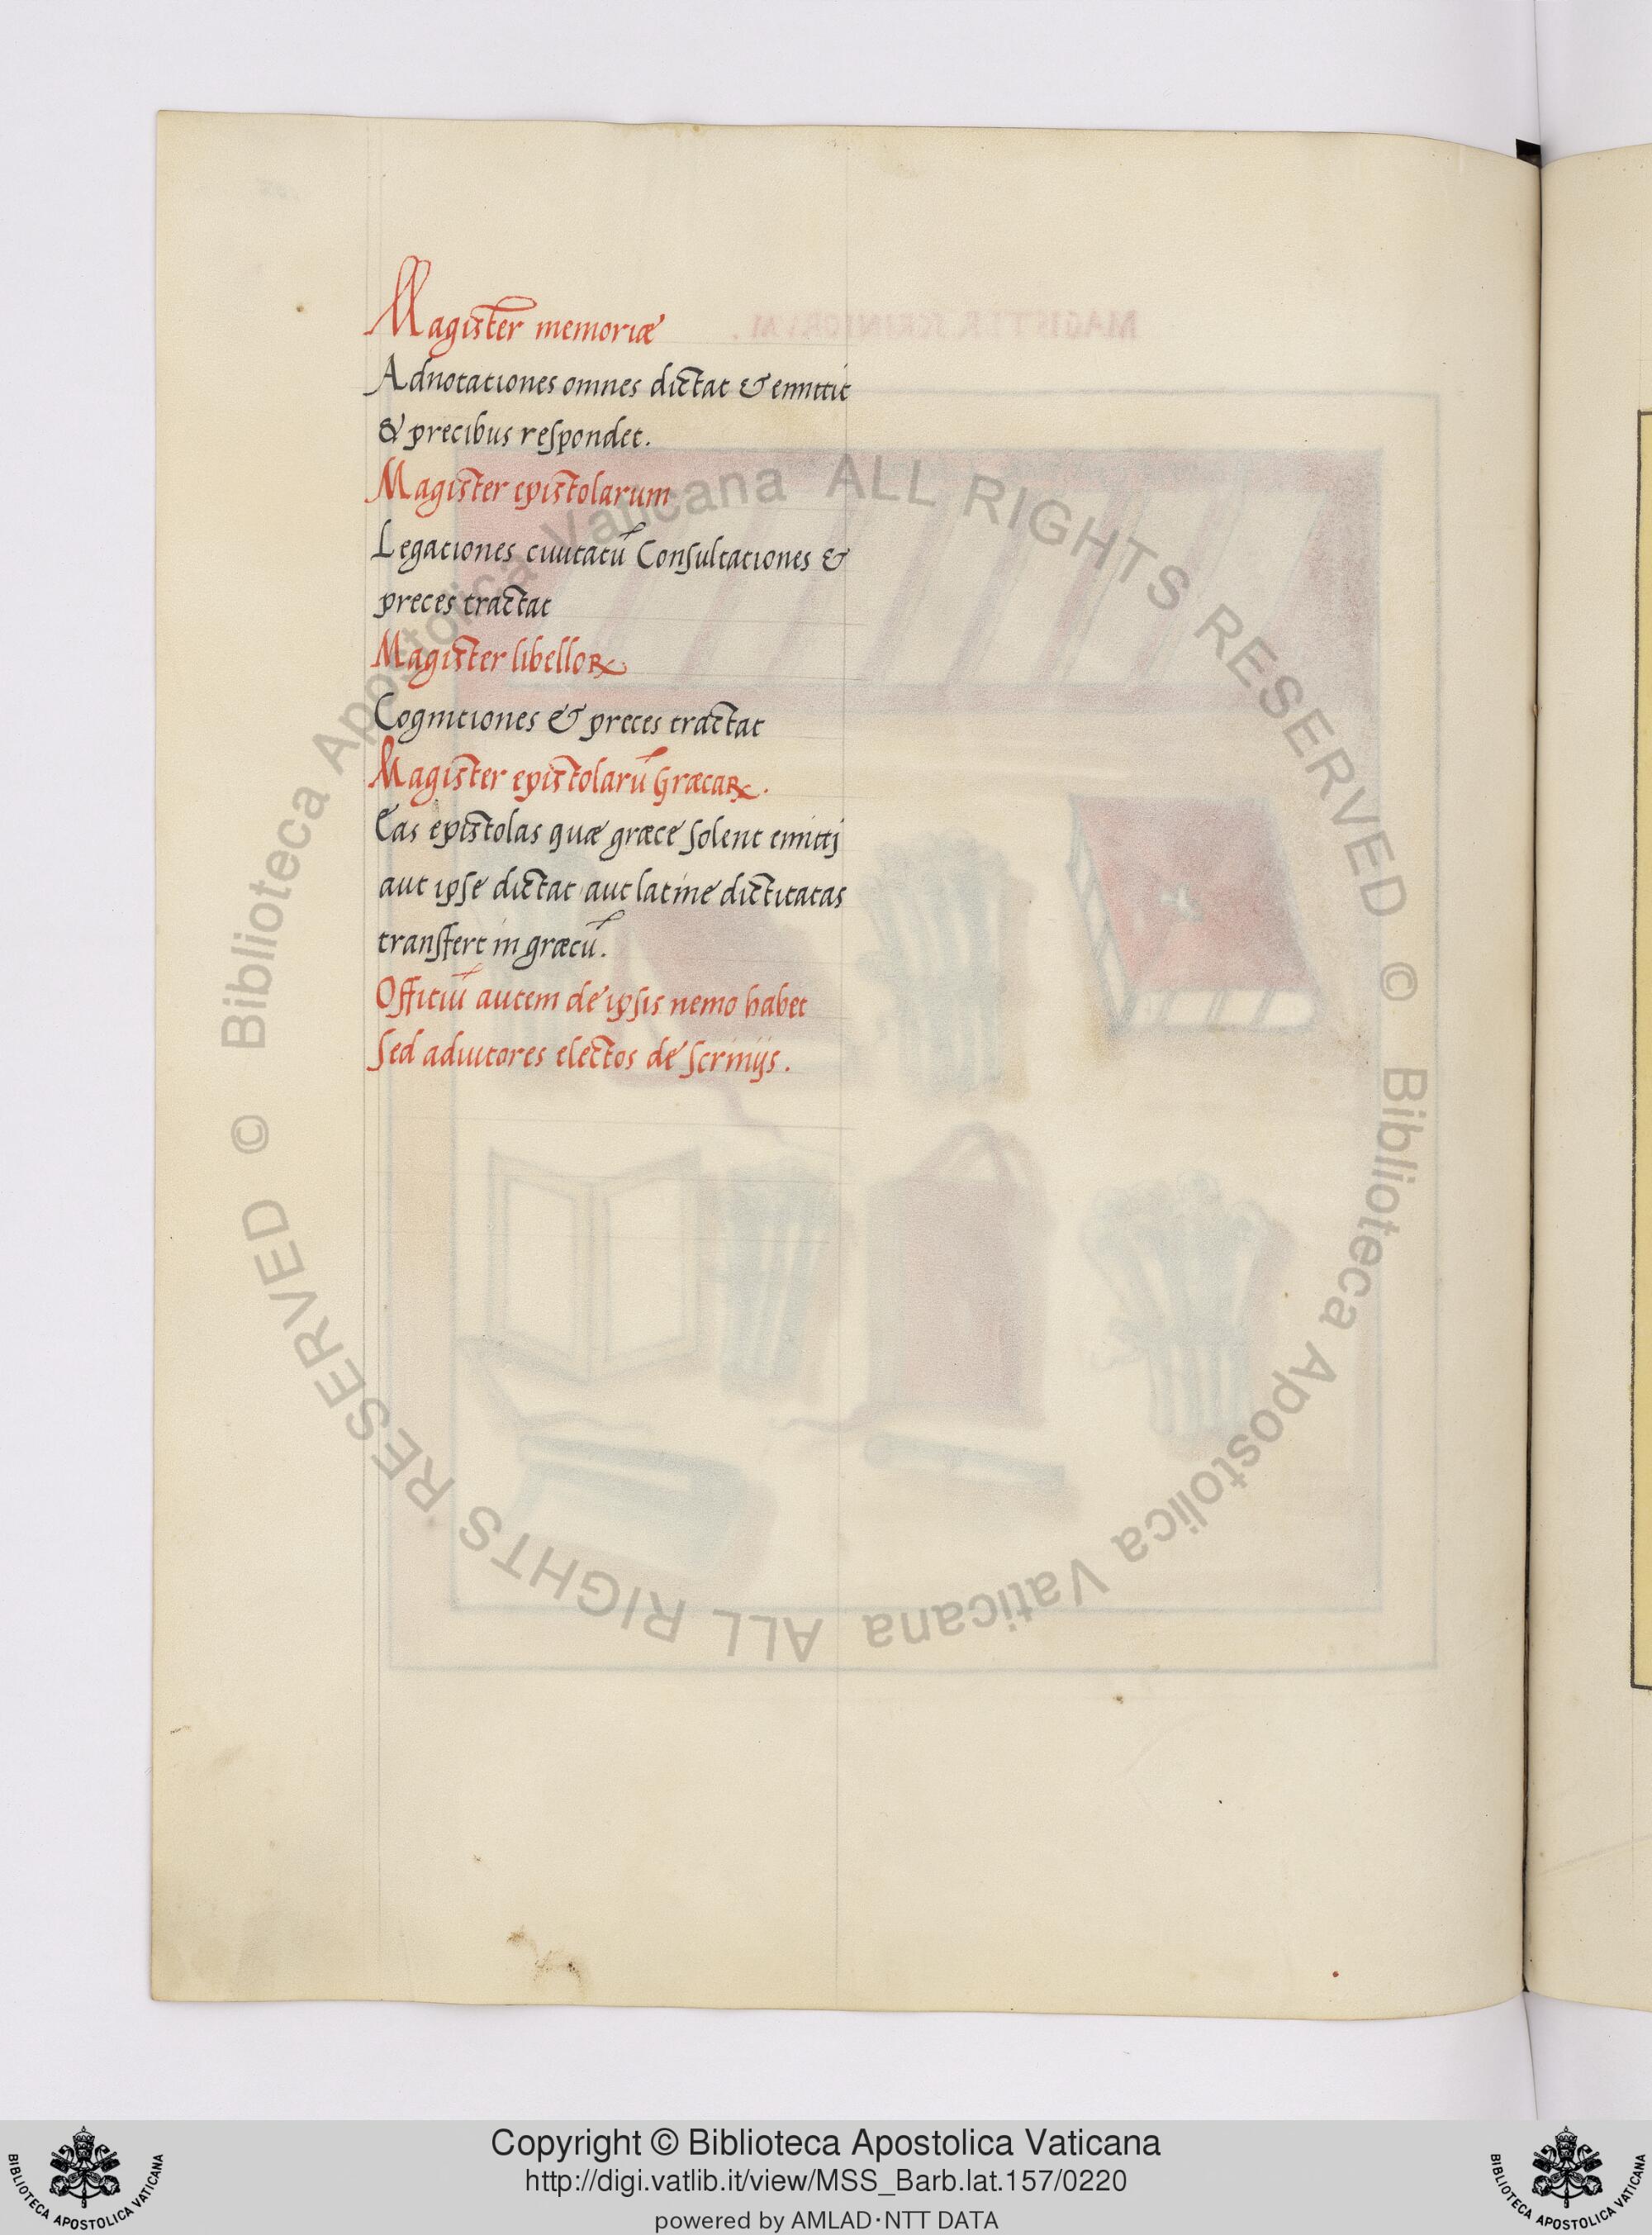 Magister memoriæ
Adnotationes omnes dictat & emittit
& precibus respondet.
Magister epistolarum
Legationes ciuitatū Consultationes &
preces tractat
Magister libelloꝝ
Cognitiones & preces tractat
Magister epistolarū Græcaꝝ.
Eas epistolas quæ græce solent emitti
aut ipse dictat aut latine dictitatas
transfert in græcū.
Officiū autem de ipsis nemo habet
Sed adiutores electos de scrinijs.
MAGISTER SCRINIORVM.
© Biblioteca Apostolica Vaticana ALL RIGHTS RESERVED
© Biblioteca Apostolica Vaticana ALL RIGHTS RESERVED
Copyright © Biblioteca Apostolica Vaticana
http://digi.vatlib.it/view/MSS_Barb.lat.157/0220
powered by AMLAD·NTT DATA
BIBLIOTECA APOSTOLICA VATICANA
BIBLIOTECA APOSTOLICA VATICANA